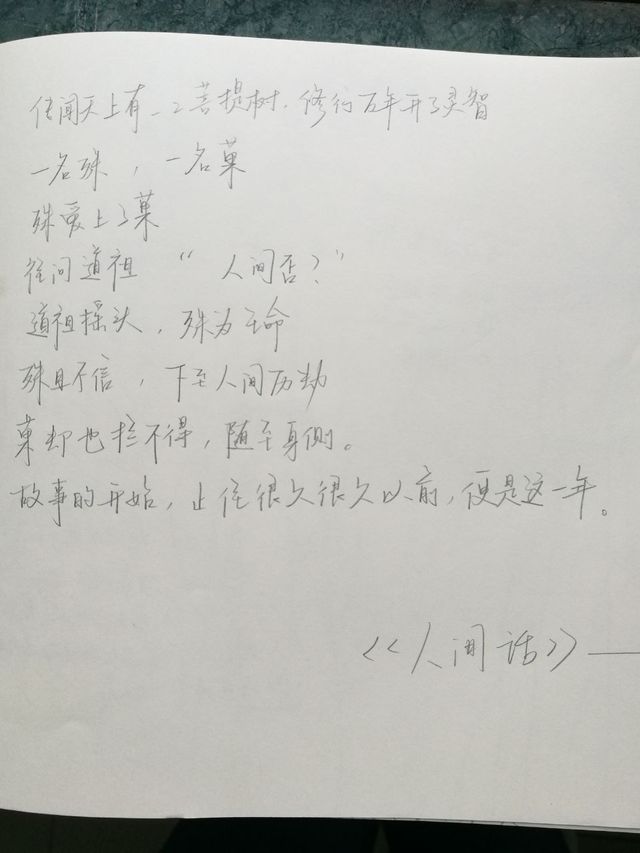 传闻天上有一二菩提树.修行万年开了灵智
一名殊，一名菓
殊爱上了菓
往问道祖“人间否？”
道祖摇头，殊为主命
殊且不信，下至人间历劫
菓却也拦不得，随至身侧。
故事的开始，止往很久很久以前，便是这一年。
《人间话》——